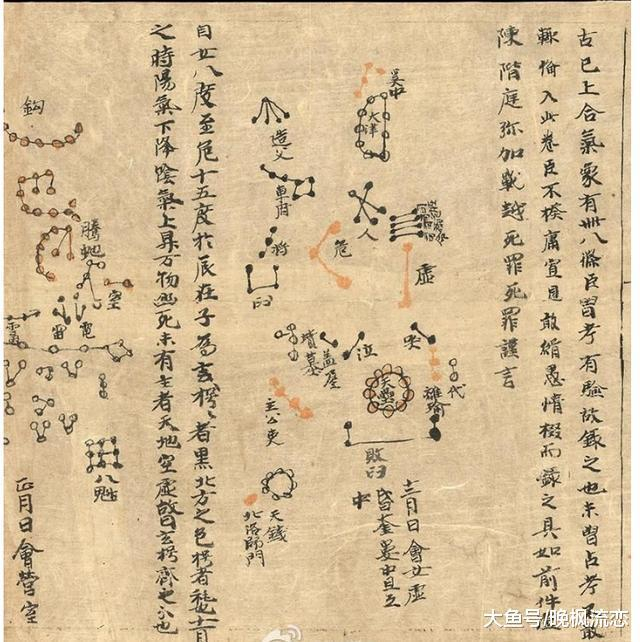 古已上合氣象有卌八條臣曾考有驗故錄之也未曾占考不敢
輒備入此卷臣不揆庸冥見敢緝愚情掇而錄之具如前件
陳階庭弥加戰越死罪死罪謹言
人
虛
哭
代
離瑜
天壘
敗臼
危
泣
蓋屋
墳墓
十二月日會女虛
昏奎婁中旦
中
造父
車府
臼
主公吏
天錢
北落師門
自女八度至危十五度於辰在子為玄枵者黑北方之色枵者耗十一月
之時陽氣下降陰氣上昇万物幽死未有生者天地空虛故曰玄枵齊之分也
鈎
騰虵
室
電
雷
八魁
正月日會營室
大鱼号/晚枫流恋